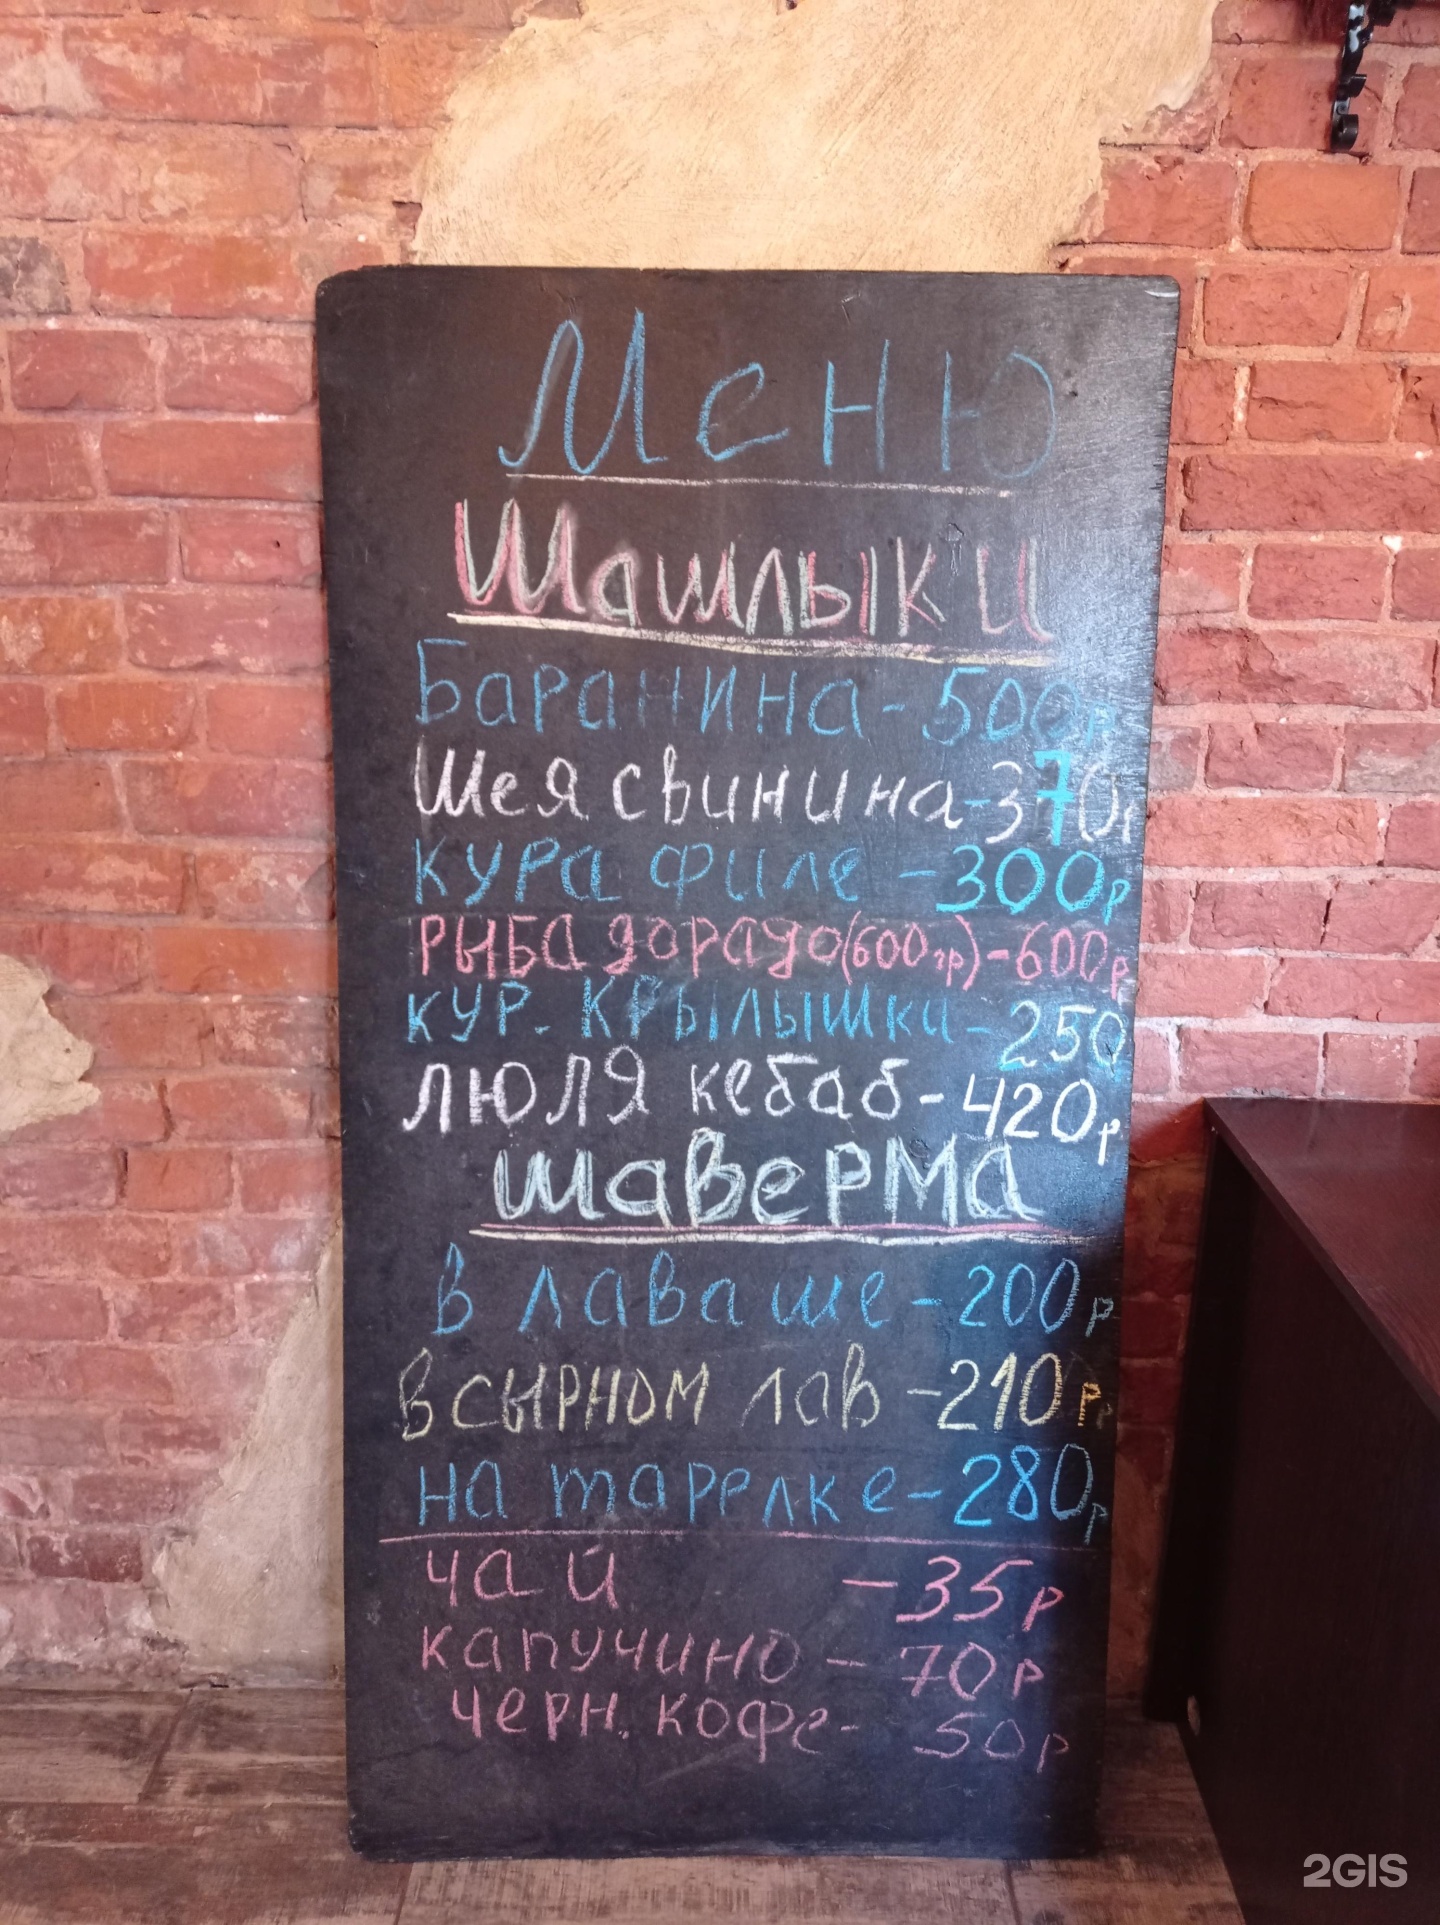 Меню
Шашлыки
Баранина - 500р
Шея свинина - 370р
кура филе - 300р
рыба дорадо (600 гр) - 600р
кур. крылышки - 250
люля кебаб - 420р
шаверма
в лаваше - 200р
в сырном лав - 210р
на тарелке - 280р
чай - 35р
капучино - 70р
черн. кофе - 50р
2GIS